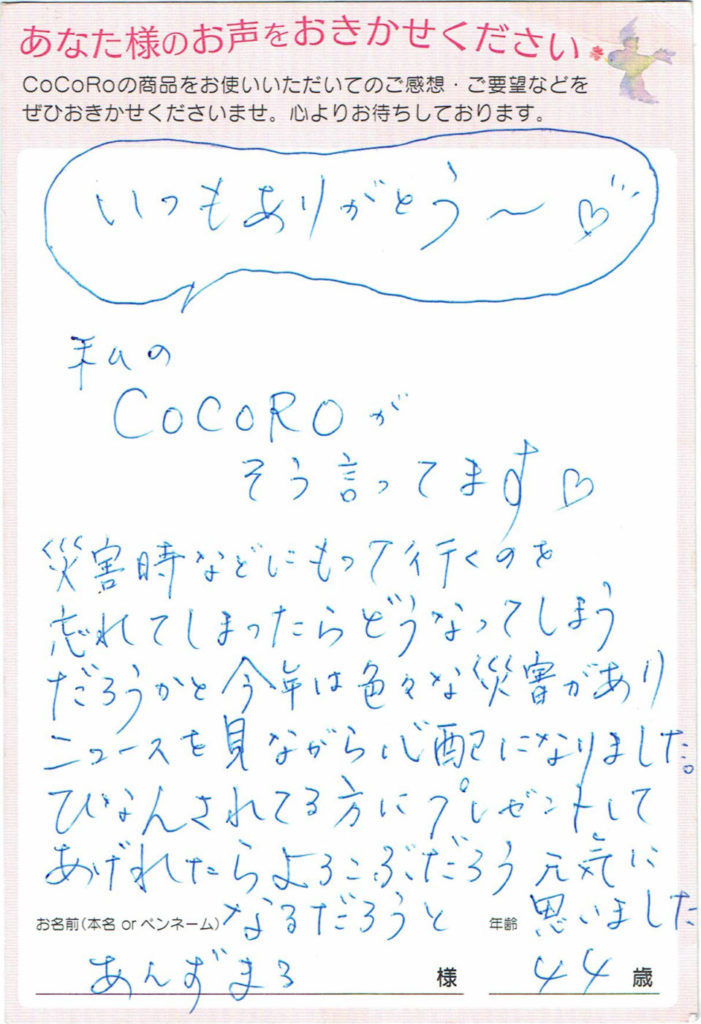 あなた様のお声をおきかせください
CoCoRoの商品をお使いいただいてのご感想・ご要望などを
ぜひおきかせくださいませ。心よりお待ちしております。
いつもありがとう〜♡
私の
CoCoROが
そう言ってます♡
災害時などにもって行くのを
忘れてしまったらどうなってしまう
だろうかと今年は色々な災害があり
ニュースを見ながら心配になりました。
ひなんされてる方にプレゼントして
あげれたらよろこぶだろう元気に
なるだろうと思いました
お名前(本名 or ペンネーム)
あんずまろ 様
年齢
44 歳